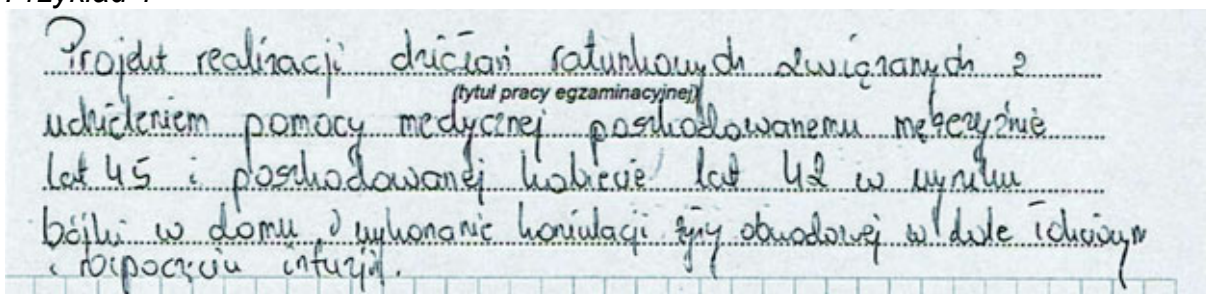 Przykład 1
Projekt realizacji działań ratunkowych związanych z
(tytuł pracy egzaminacyjnej)
udzieleniem pomocy medycznej poszkodowanemu mężczyźnie
lat 45 i poszkodowanej kobiecie lat 42 w wyniku
bójki w domu wykonanie kaniulacji żyły obwodowej w dole łokciowym
i rozpoczęciu infuzji.